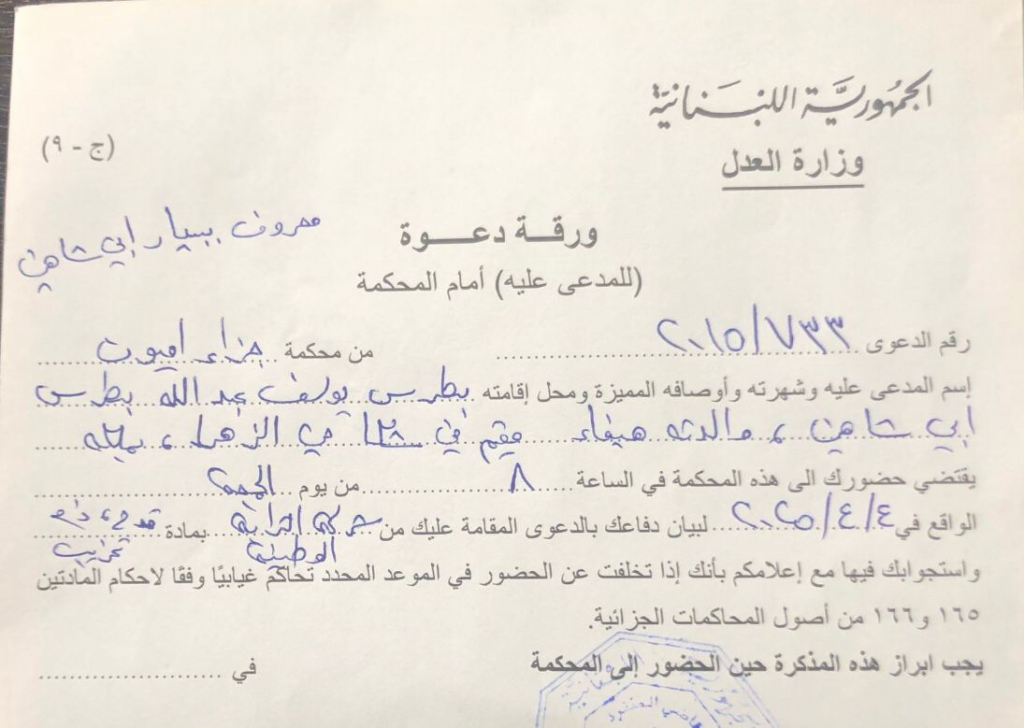 الجمهورية اللبنانية
وزارة العدل
(ج - ٩)
معروف ببيار ابي شاهين
ورقة دعوة
(للمدعى عليه) أمام المحكمة
رقم الدعوى ٢٠١٥/٧٣٣ من محكمة جزاء اميون
إسم المدعى عليه وشهرته وأوصافه المميزة ومحل إقامته بطرس يوسف عبد الله بطرس
ابي شاهين، والدته هيفاء مقيم في شكا حي الزهراء، بملكه
يقتضي حضورك الى هذه المحكمة في الساعة ٨ من يوم الجمعة
الواقع في ٢٠٢٥/٤/٤ لبيان دفاعك بالدعوى المقامة عليك من شركة الترابة بمادة قدح وذم
الوطنية تخريب
واستجوابك فيها مع إعلامكم بأنك إذا تخلفت عن الحضور في الموعد المحدد تحاكم غيابيًا وفقًا لاحكام المادتين
١٦٥ و١٦٦ من أصول المحاكمات الجزائية.
يجب ابراز هذه المذكرة حين الحضور إلى المحكمة في